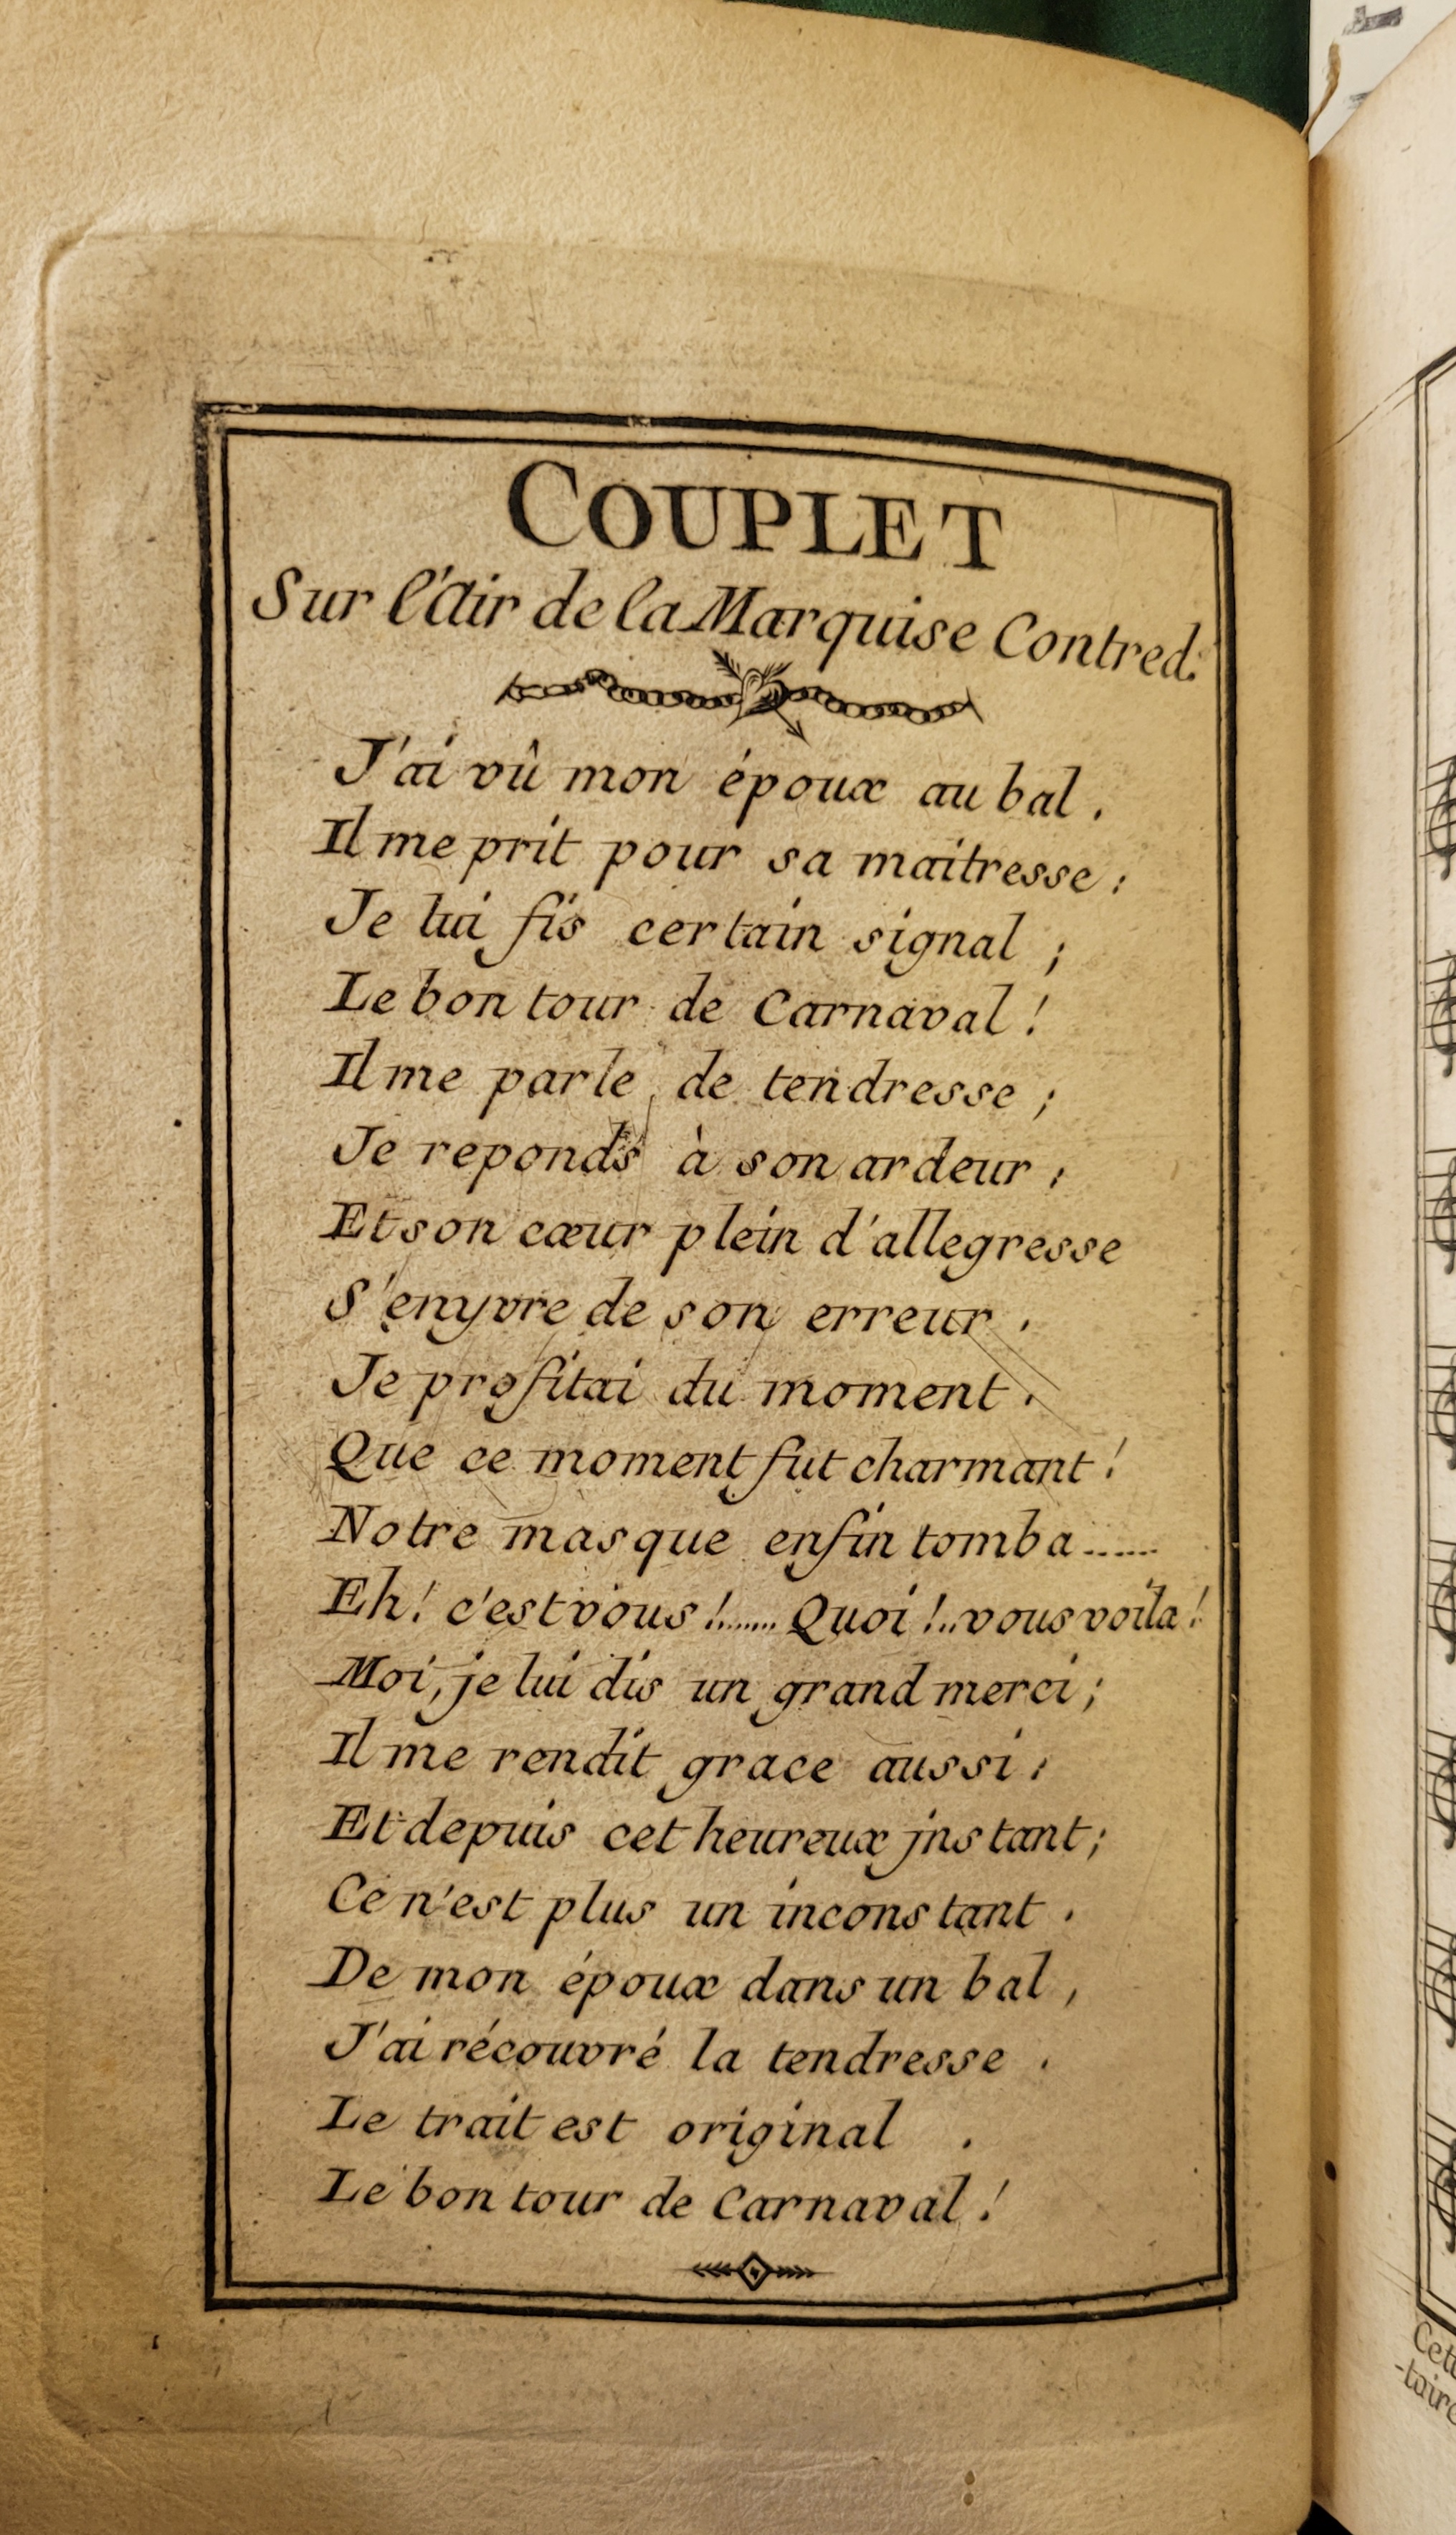 COUPLET
Sur l'Air de la Marquise Contred.
J'ai vû mon époux au bal.
Il me prit pour sa maitresse:
Je lui fis certain signal;
Le bon tour de Carnaval!
Il me parle de tendresse;
Je reponds à son ardeur;
Et son cœur plein d'allegresse
S'enyvre de son erreur.
Je profitai du moment.
Que ce moment fut charmant!
Notre masque enfin tomba......
Eh! c'est vous!....... Quoi!..vous voila!
Moi, je lui dis un grand merci;
Il me rendit grace aussi:
Et depuis cet heureux jnstant;
Ce n'est plus un inconstant.
De mon époux dans un bal,
J'ai récouvré la tendresse.
Le trait est original.
Le bon tour de Carnaval!
Cett
-taire